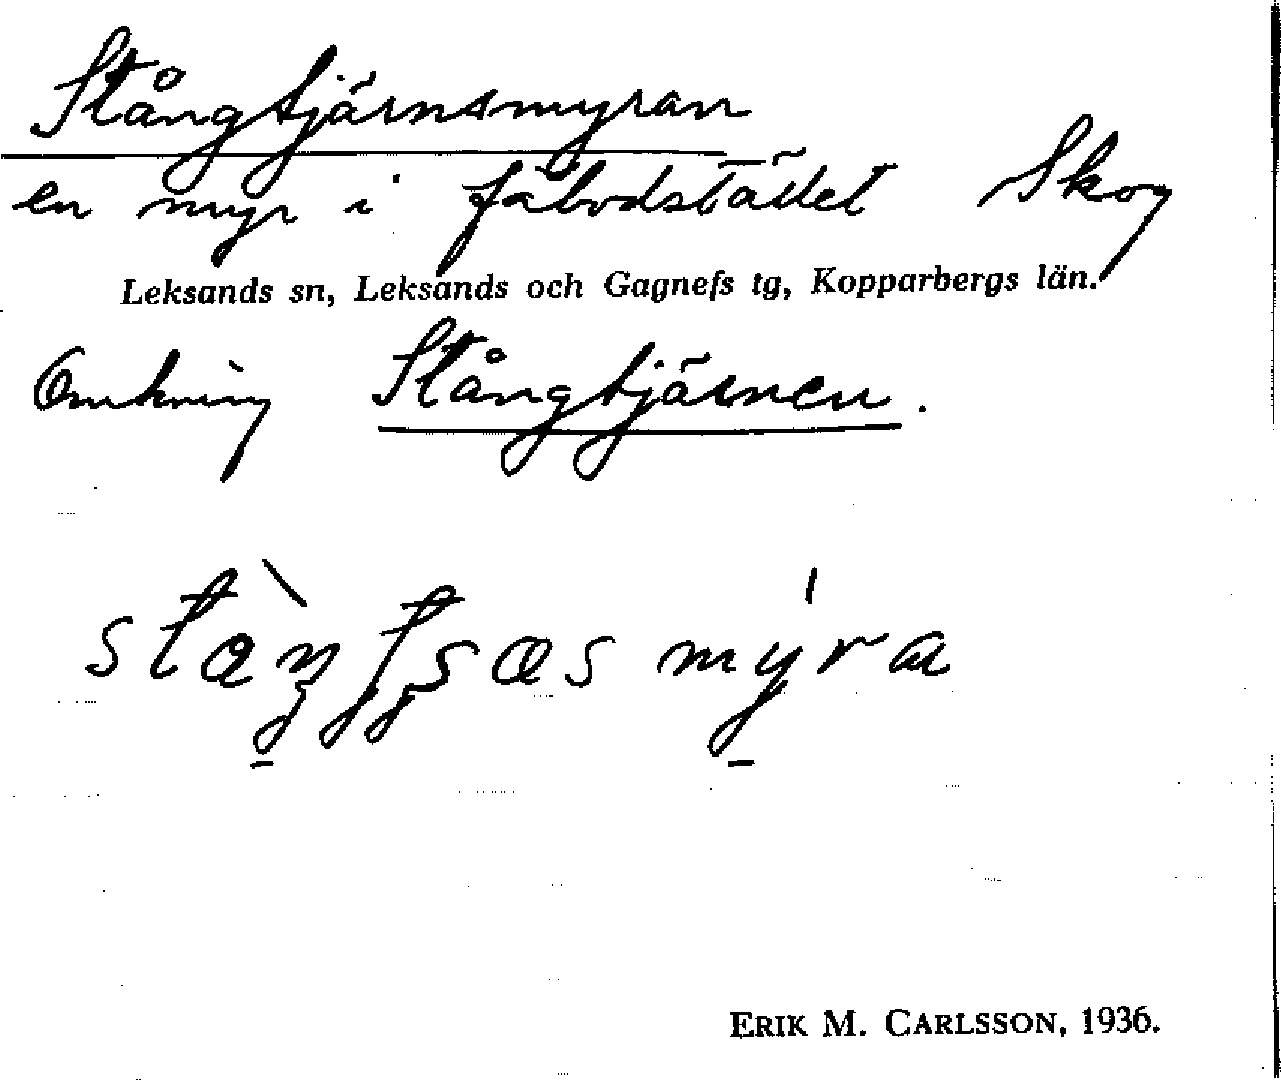 Stångtjärnsmyran
en myr i fäbodstället Skog
Leksands sn, Leksands och Gagnefs tg, Kopparbergs län.
Omkring Stångtjärnen.
ERIK M. CARLSSON, 1936.